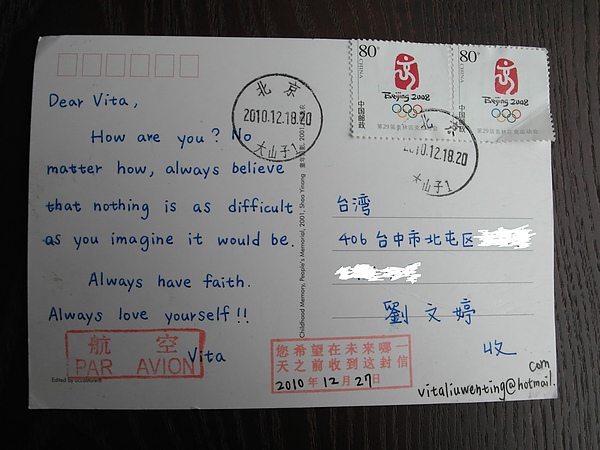 Dear Vita,
How are you? No
matter how, always believe
that nothing is as difficult
as you imagine it would be.
Always have faith.
Always love yourself!!
Vita
航 空
PAR AVION
Edited by
Childhood Memory, People's Memorial, 2001, Shao Yinong
北京
2010.12.18.20
大山子1
80
CHINA
中国邮政
Beijing 2008
第29届奥林匹克运动会
80
CHINA
中国邮政
Beijing 2008
第29届奥林匹克运动会
北京
2010.12.18.20
大山子1
台湾
406 台中市北屯区
劉文婷
收
您希望在未来哪一
天之前收到这封信
2010年12月27日
com
vitaliuwenting@hotmail.